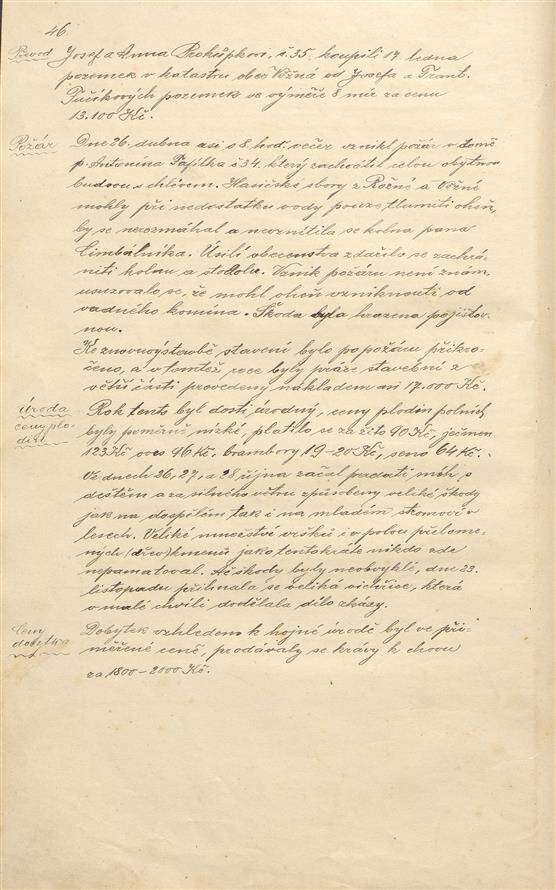 46.
Převod Josef a Anna Prokůpkovi, č.35. koupili 17. ledna
pozemek v katastru obec Věžná od Josefa a Frant.
Tučkových pozemek ve výměře 8 mír za cenu
13.100 Kč.
Požár Dne 26. dubna asi o 8. hod. večer vznikl požár v domě
p. Antonína Fajtla č 34. který zachvátil celou obytnou
budovu s chlévem. Hasičské sbory z Rožné a Věžné
mohly při nedostatku vody pouze tlumiti oheň,
by se nerozmáhal a nevznítila se kolna pana
Cimbálníka. Úsilí obecenstva zdařilo se zachrá-
niti kolnu a stodolu. Vznik požáru není znám,
usuzovalo se, že mohl oheň vzniknouti od
vadného komína. Škoda byla hrazena pojistov-
nou.
Ke znovuvýstavbě stavení bylo po požáru přikro-
čeno, a v tomtéž roce byly práce stavební z
větší části provedeny nákladem asi 17.000 Kč.
Úroda Rok tento byl dosti úrodný, ceny plodin polních
ceny plo- byly poměrně nízké, platilo se za žito 90 Kč, ječmen
din 123 Kč oves 96 Kč. brambory 19-20 Kč, seno 64 Kč.
Ve dnech 26, 27, a 28 října začal padati sníh s
deštěm a za silného větru způsobeny veliké škody
jak na dospělém tak i na mladém stromoví v
lesech. Veliké množství vršků i v polou přelome-
ných (dřev) kmenů jako tentokráte nikdo zde
nepamatoval. Ač škody byly neobvyklé, dne 23.
listopadu přihnala se veliká vichřice, která
v malé chvíli dodělala dílo zkázy.
Ceny Dobytek vzhledem k hojné úrodě byl ve při-
dobytka měřené ceně, prodávaly se krávy k chovu
za 1800-2000 Kč.